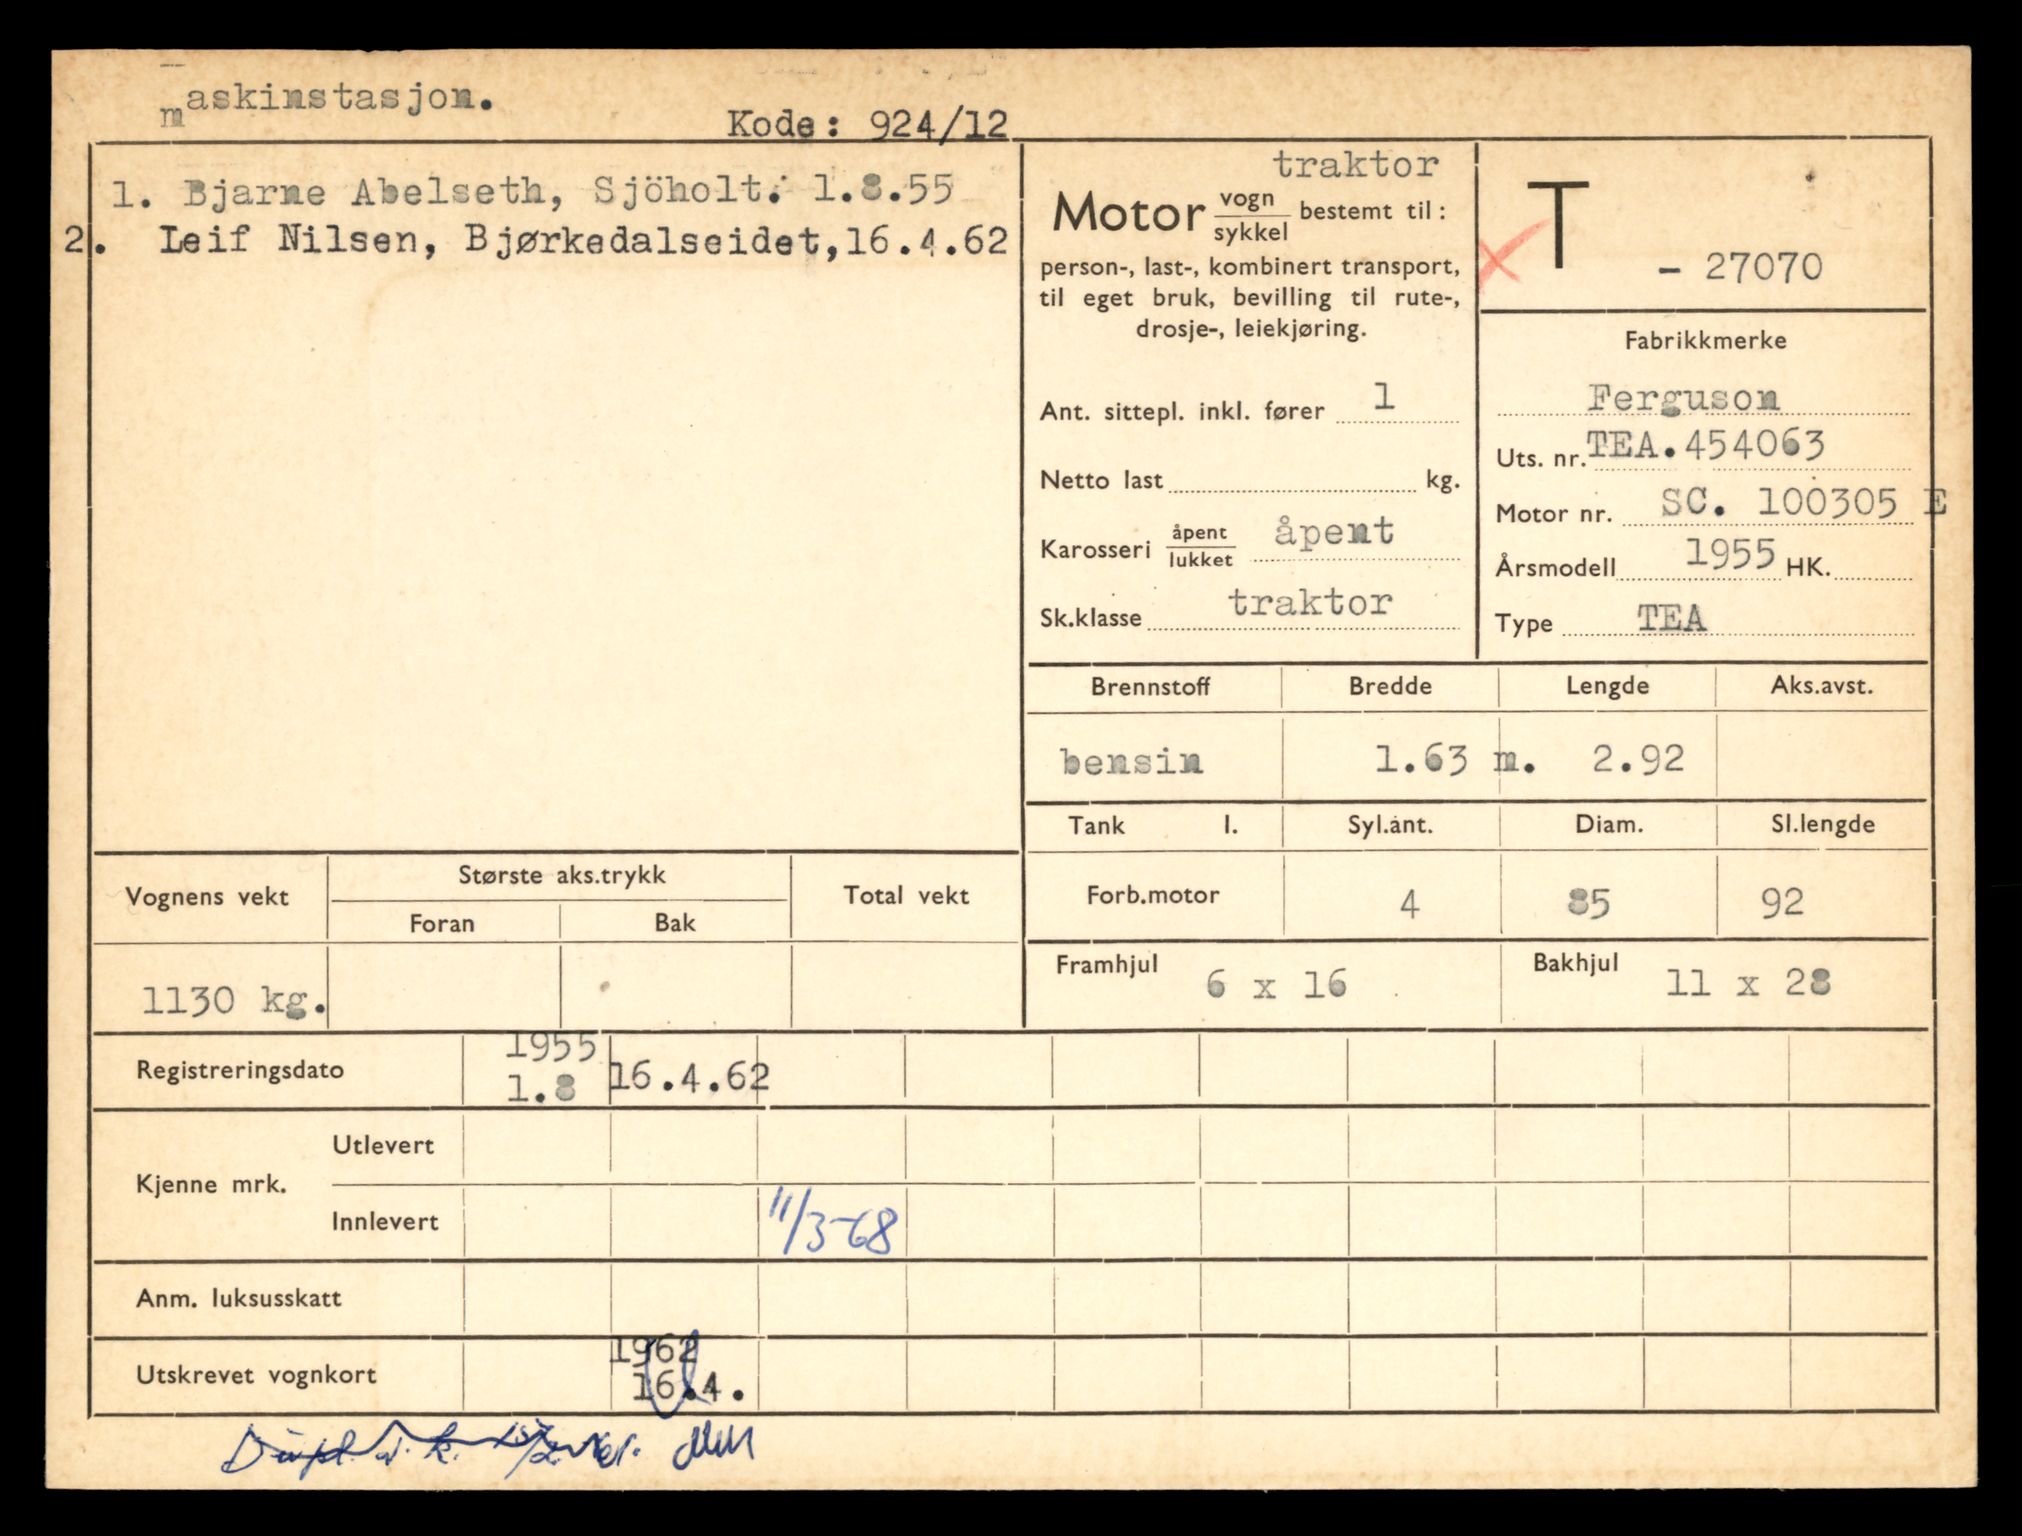 maskinstasjon.
Kode: 924/12
1. Bjarne Abelseth, Sjöholt. 1.8.55
2. Leif Nilsen, Bjørkedalseidet, 16.4.62
traktor
Motor vogn/sykkel bestemt til:
person-, last-, kombinert transport,
til eget bruk, bevilling til rute-,
drosje-, leiekjøring.
Ant. sittepl. inkl. fører 1
Netto last kg.
Karosseri åpent/lukket åpent
Sk.klasse traktor
T
- 27070
Fabrikkmerke
Ferguson
Uts. nr. TEA.454063
Motor nr. SC. 100305 E
Årsmodell 1955 HK.
Type TEA
Brennstoff Bredde Lengde Aks.avst.
bensin 1.63 m. 2.92
Tank l. Syl.ant. Diam. Sl.lengde
Forb.motor 4 85 92
Framhjul 6 x 16 Bakhjul 11 x 28
Vognens vekt Største aks.trykk Total vekt
Foran Bak
1130 kg.
Registreringsdato 1955 1.8 16.4.62
Kjenne mrk. Utlevert
Innlevert 11/3-68
Anm. luksusskatt
Utskrevet vognkort 1962 16.4.
Dupl. v. k.